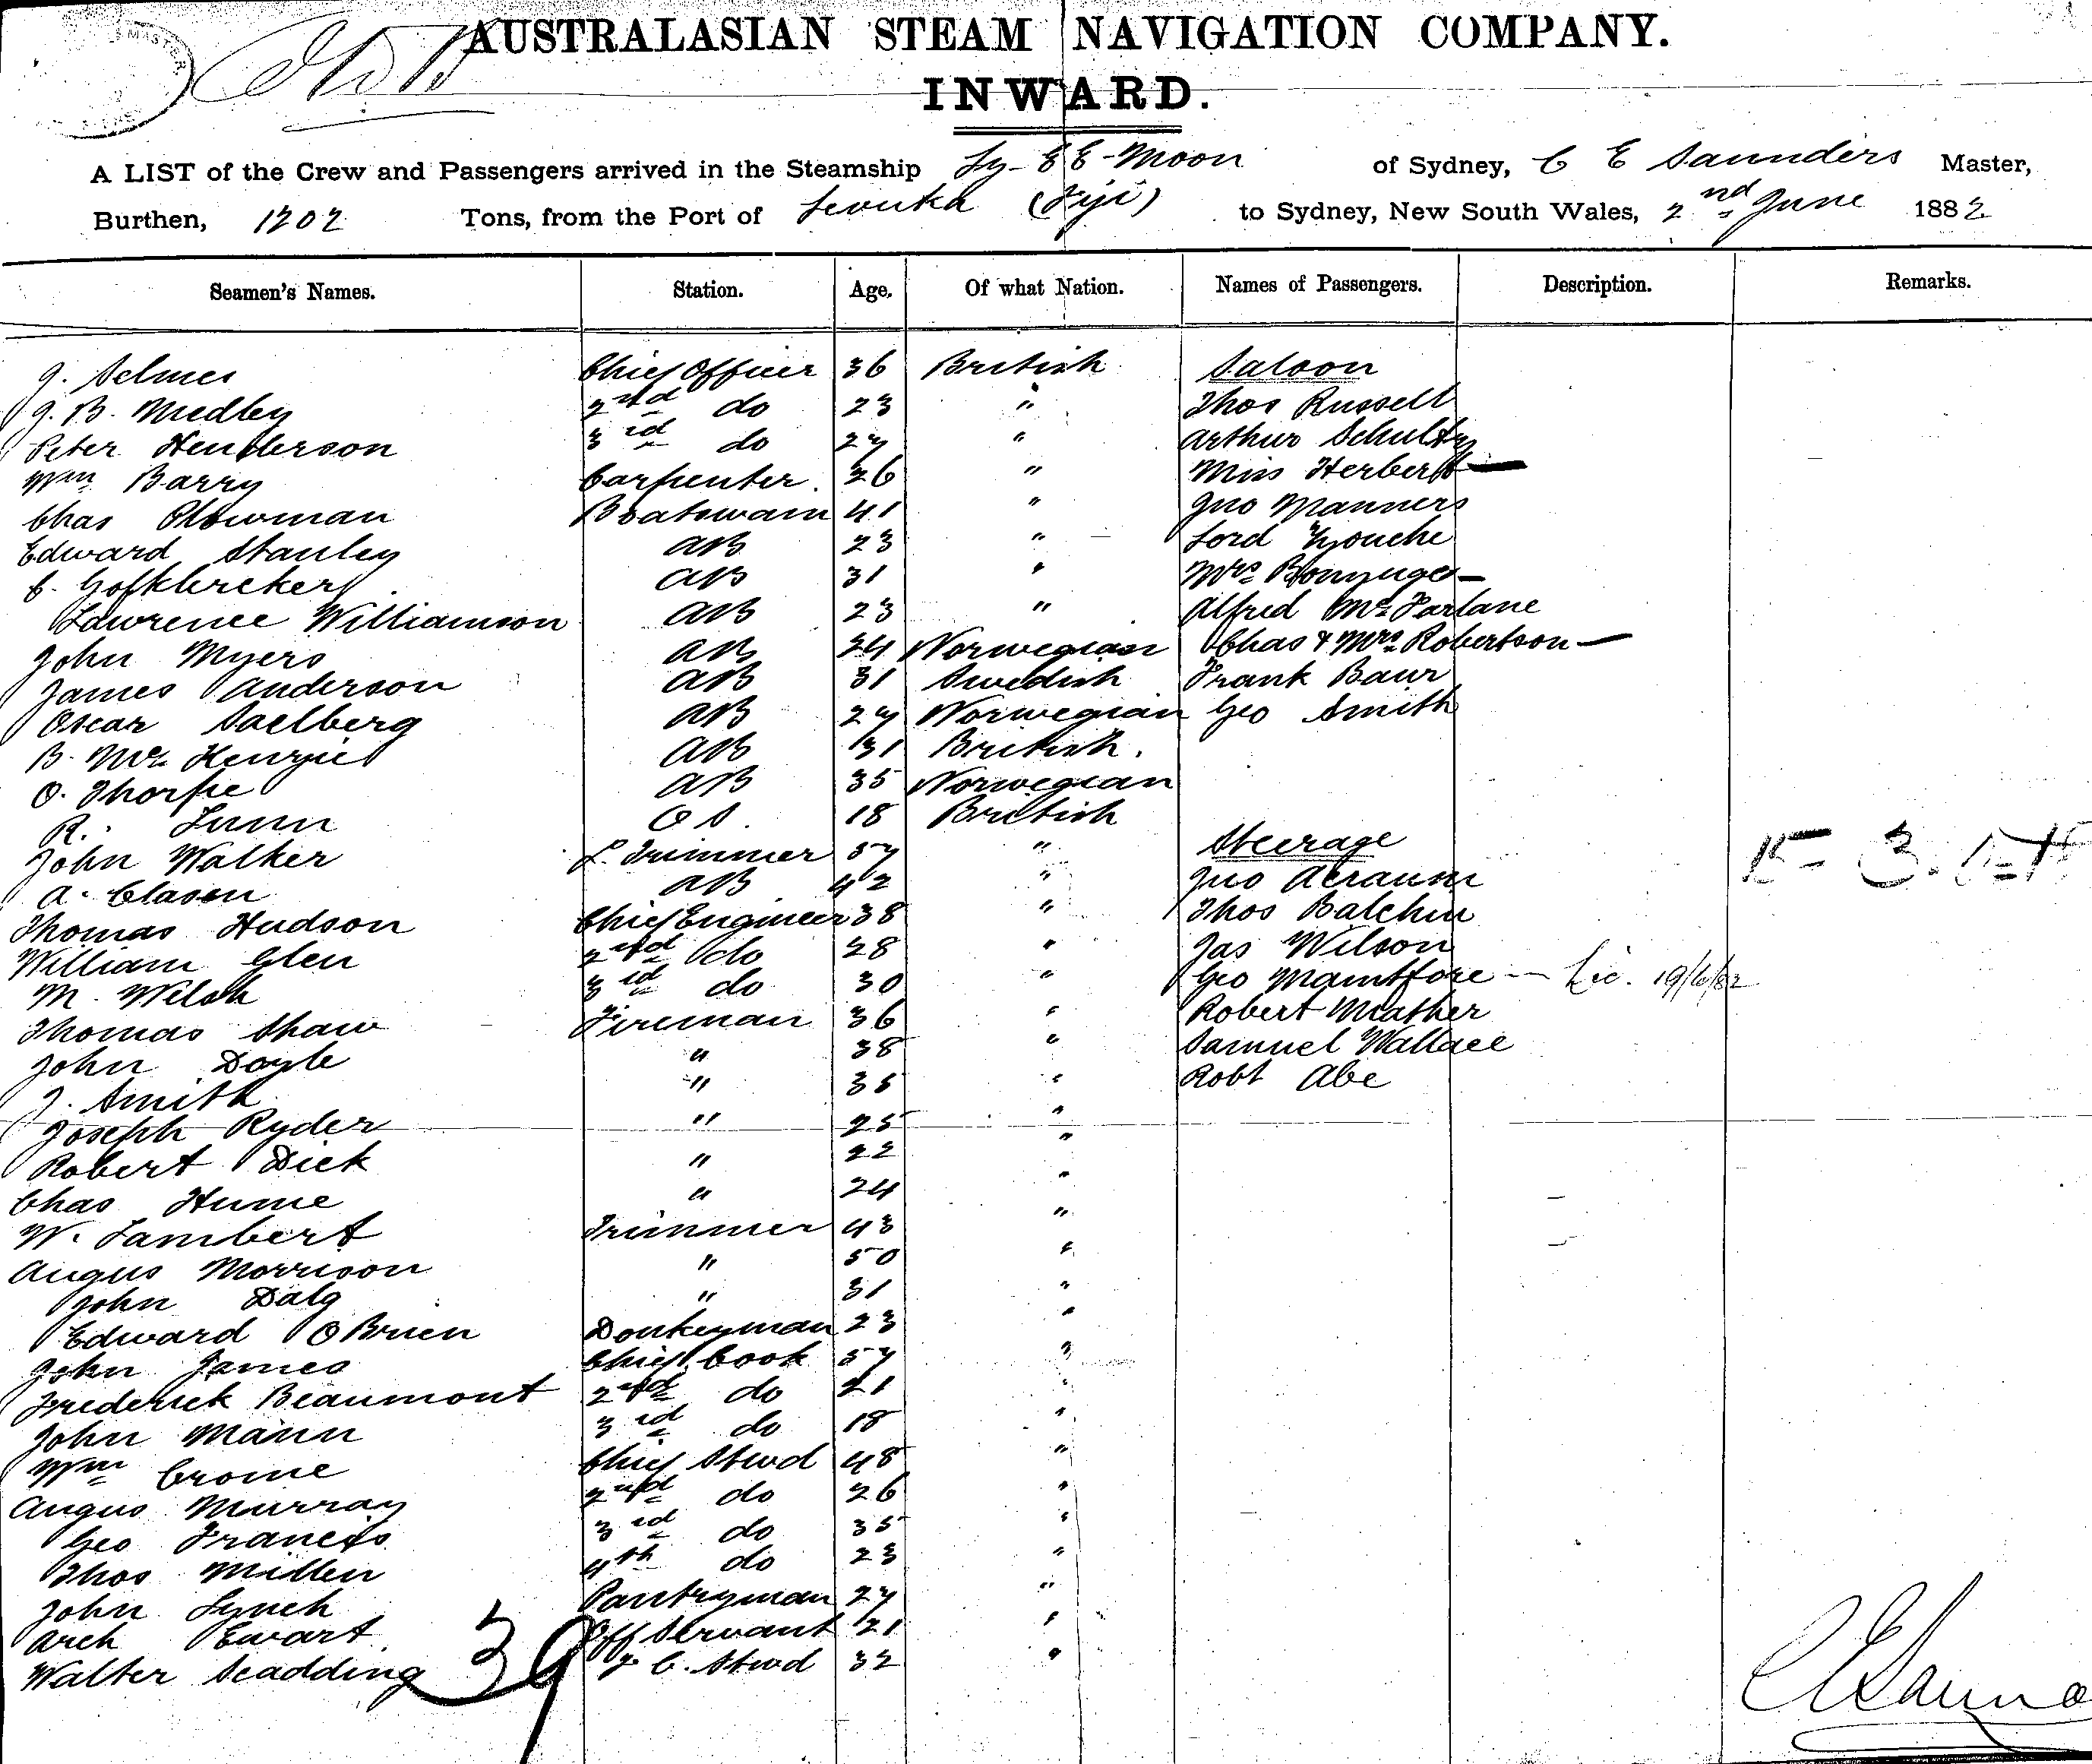 AUSTRALASIAN STEAM NAVIGATION COMPANY.
INWARD.
A LIST of the Crew and Passengers arrived in the Steamship Ly-EE-Moon of Sydney, C E Saunders Master,
Burthen, 1202 Tons, from the Port of Levuka (Fiji) to Sydney, New South Wales, 2nd June 1882
Seamen's Names. Station. Age. Of what Nation. Names of Passengers. Description. Remarks.
J. Selmes Chief Officer 36 British Saloon
J. B. Medley 2nd do 23 " Thos Russell
Peter Henderson 3rd do 27 " Arthur Schultz
Wm Barry Carpenter. 26 " Miss Herbert —
Chas Plowman Boatswain 41 " Jno Manners
Edward Stanley AB 23 " Lord Zouche
C. AB 31 " Mrs —
Lawrence Williamson AB 23 " Alfred McFarlane
John Myers AB 24 Norwegian Chas & Mrs Robertson —
James Anderson AB 31 Swedish Frank Baur
Oscar Saelberg AB 27 Norwegian Geo Smith
B. McKenzie AB 31 British.
O. Thorpe AB 35 Norwegian
R. Lunn OS. 18 British
John Walker L. Trimmer 57 " Steerage
A. Clasen AB 42 " Jno
Thomas Hudson Chief Engineer 38 " Thos Balchin
William Glen 2nd do 28 " Jas Wilson
M. Welsh 3rd do 30 " Geo — Lic. 19/6/82
Thomas Shaw Fireman 36 " Robert Mather
John Doyle " 38 " Samuel Wallace
J. Smith " 35 " Robt Abe
Joseph Ryder " 25 "
Robert Dick " 22 "
Chas Hume " 24 "
W. Lambert Trimmer 43 "
Angus Morrison " 50 "
John Daly " 31 "
Edward OBrien Donkeyman 23 "
John James Chief Cook 57 "
Frederick Beaumont 2nd do 21 "
John Mann 3rd do 18 "
Wm Crome Chief Stwd 48 "
Angus Murray 2nd do 26 "
Geo Francis 3rd do 35 "
Thos Millen 4th do 23 "
John Lynch Pantryman 27 "
Arch Ewart Off Servant 21 "
Walter Scadding F. C. Stwd 32 "
39